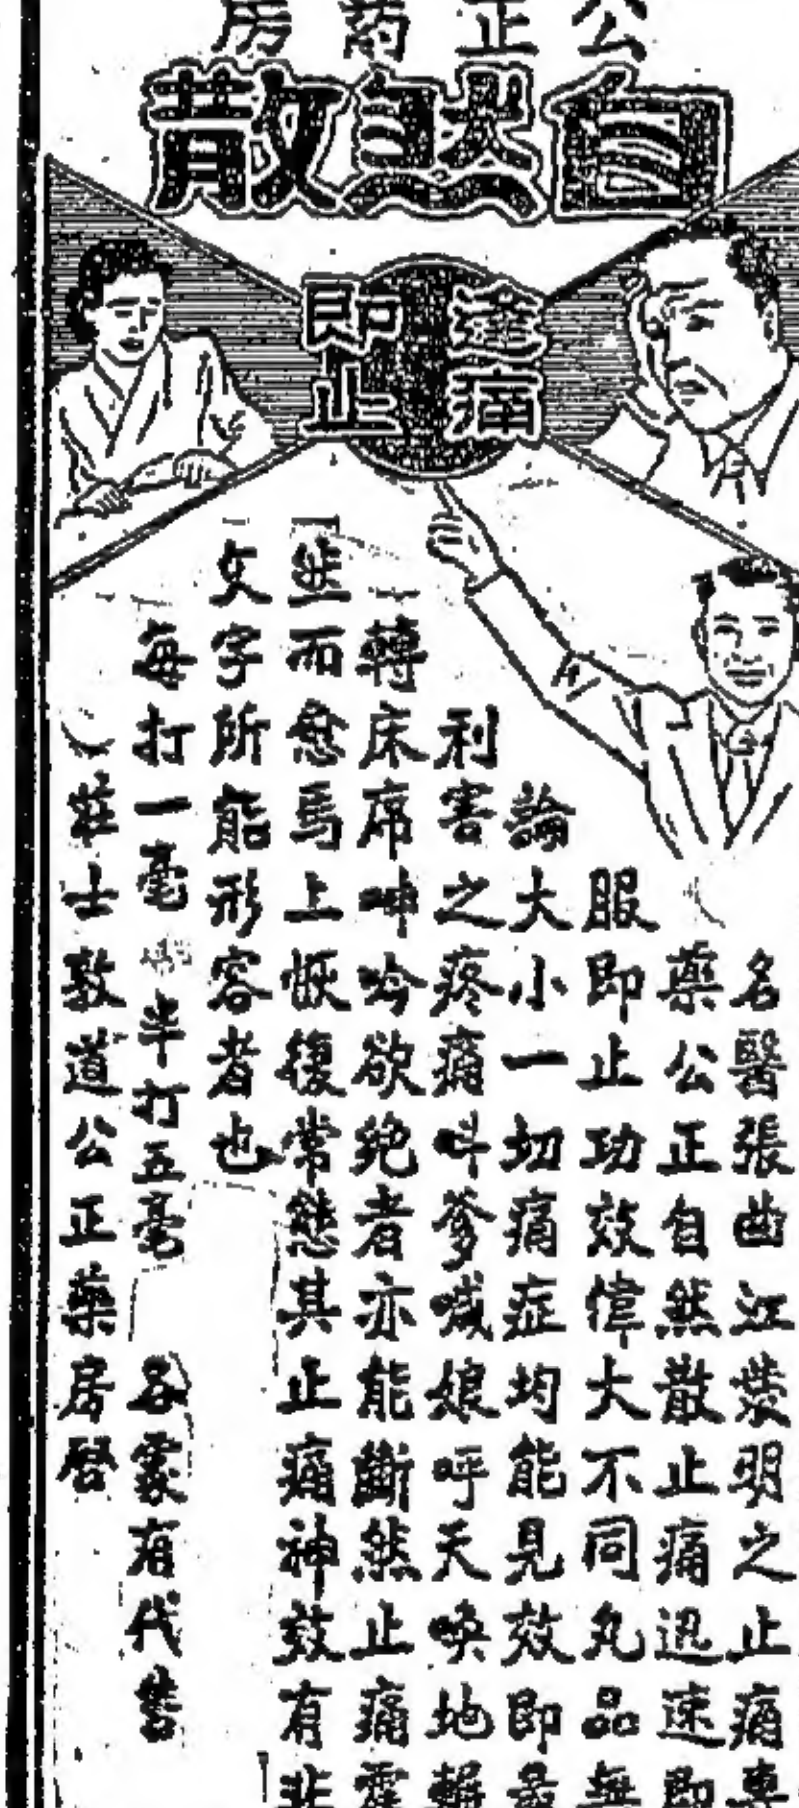 公正葯房
自然散
逢痛
即止
名醫張曲江發明之止痛專
藥公正自然散止痛迅速即
服即止功效偉大不同丸品無
論大小一切痛症均能見效即最
利害之疼痛呌爹喊娘呼天喚地輾
轉床席呻吟欲絕者亦能斷然止痛霍
然而愈馬上恢復常態其止痛神效有非
文字所能形容者也
每打一毫 半打五毫 各 有代售
莊士敦道公正藥房啓